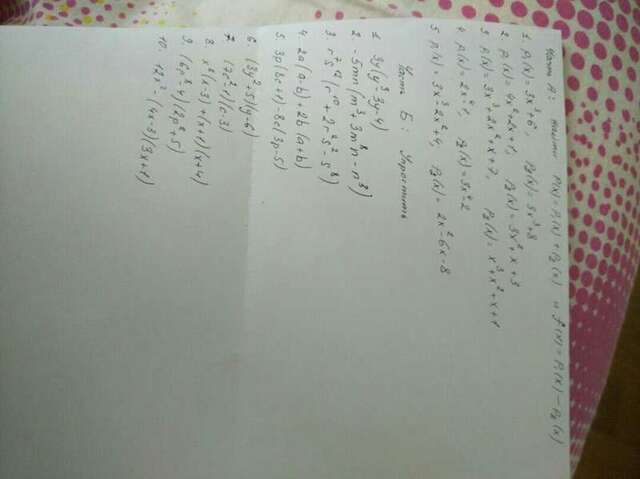 Часть А: найти P(x) = P₁(x) + P₂(x) и f(x) = P₁(x) − P₂(x)
1. P₁(x) = 3x³+6, P₂(x) = 3x³+8
2. P₁(x) = 4x²+2x+1, P₂(x) = 3x²+x+3
3. P₁(x) = 3x³+2x²+x+7, P₂(x) = x³+x²+x+1
4. P₁(x) = 2x⁴-1, P₂(x) = 3x⁴-2
5. P₁(x) = 3x³-2x²+4, P₂(x) = 2x²-6x-8
Часть Б: Упростить
1 3y(y³-3y-4)
2. -5mn(m³+3m⁸n-n³)
3. r⁷s¹²(r¹⁰+2r²s²-s⁸)
4. 2a(a-b)+2b(a+b)
5. 3p(8c+1)-8c(3p-5)
6. (3y²+5)(y-6)
7. (7c²-1)(c-3)
8. x²(x-3)+(x+1)(x+4)
9. (6p²-4)(2p²+5)
10. 12x²-(4x-3)(3x+1)